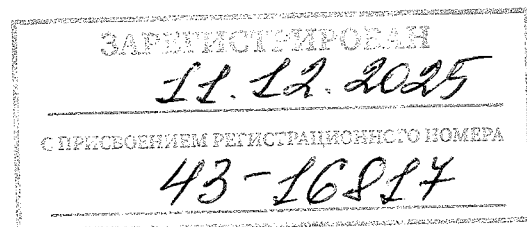 ЗАРЕГИСТРИРОВАН
11.12.2025
С ПРИСВОЕНИЕМ РЕГИСТРАЦИОННОГО НОМЕРА
43-16817